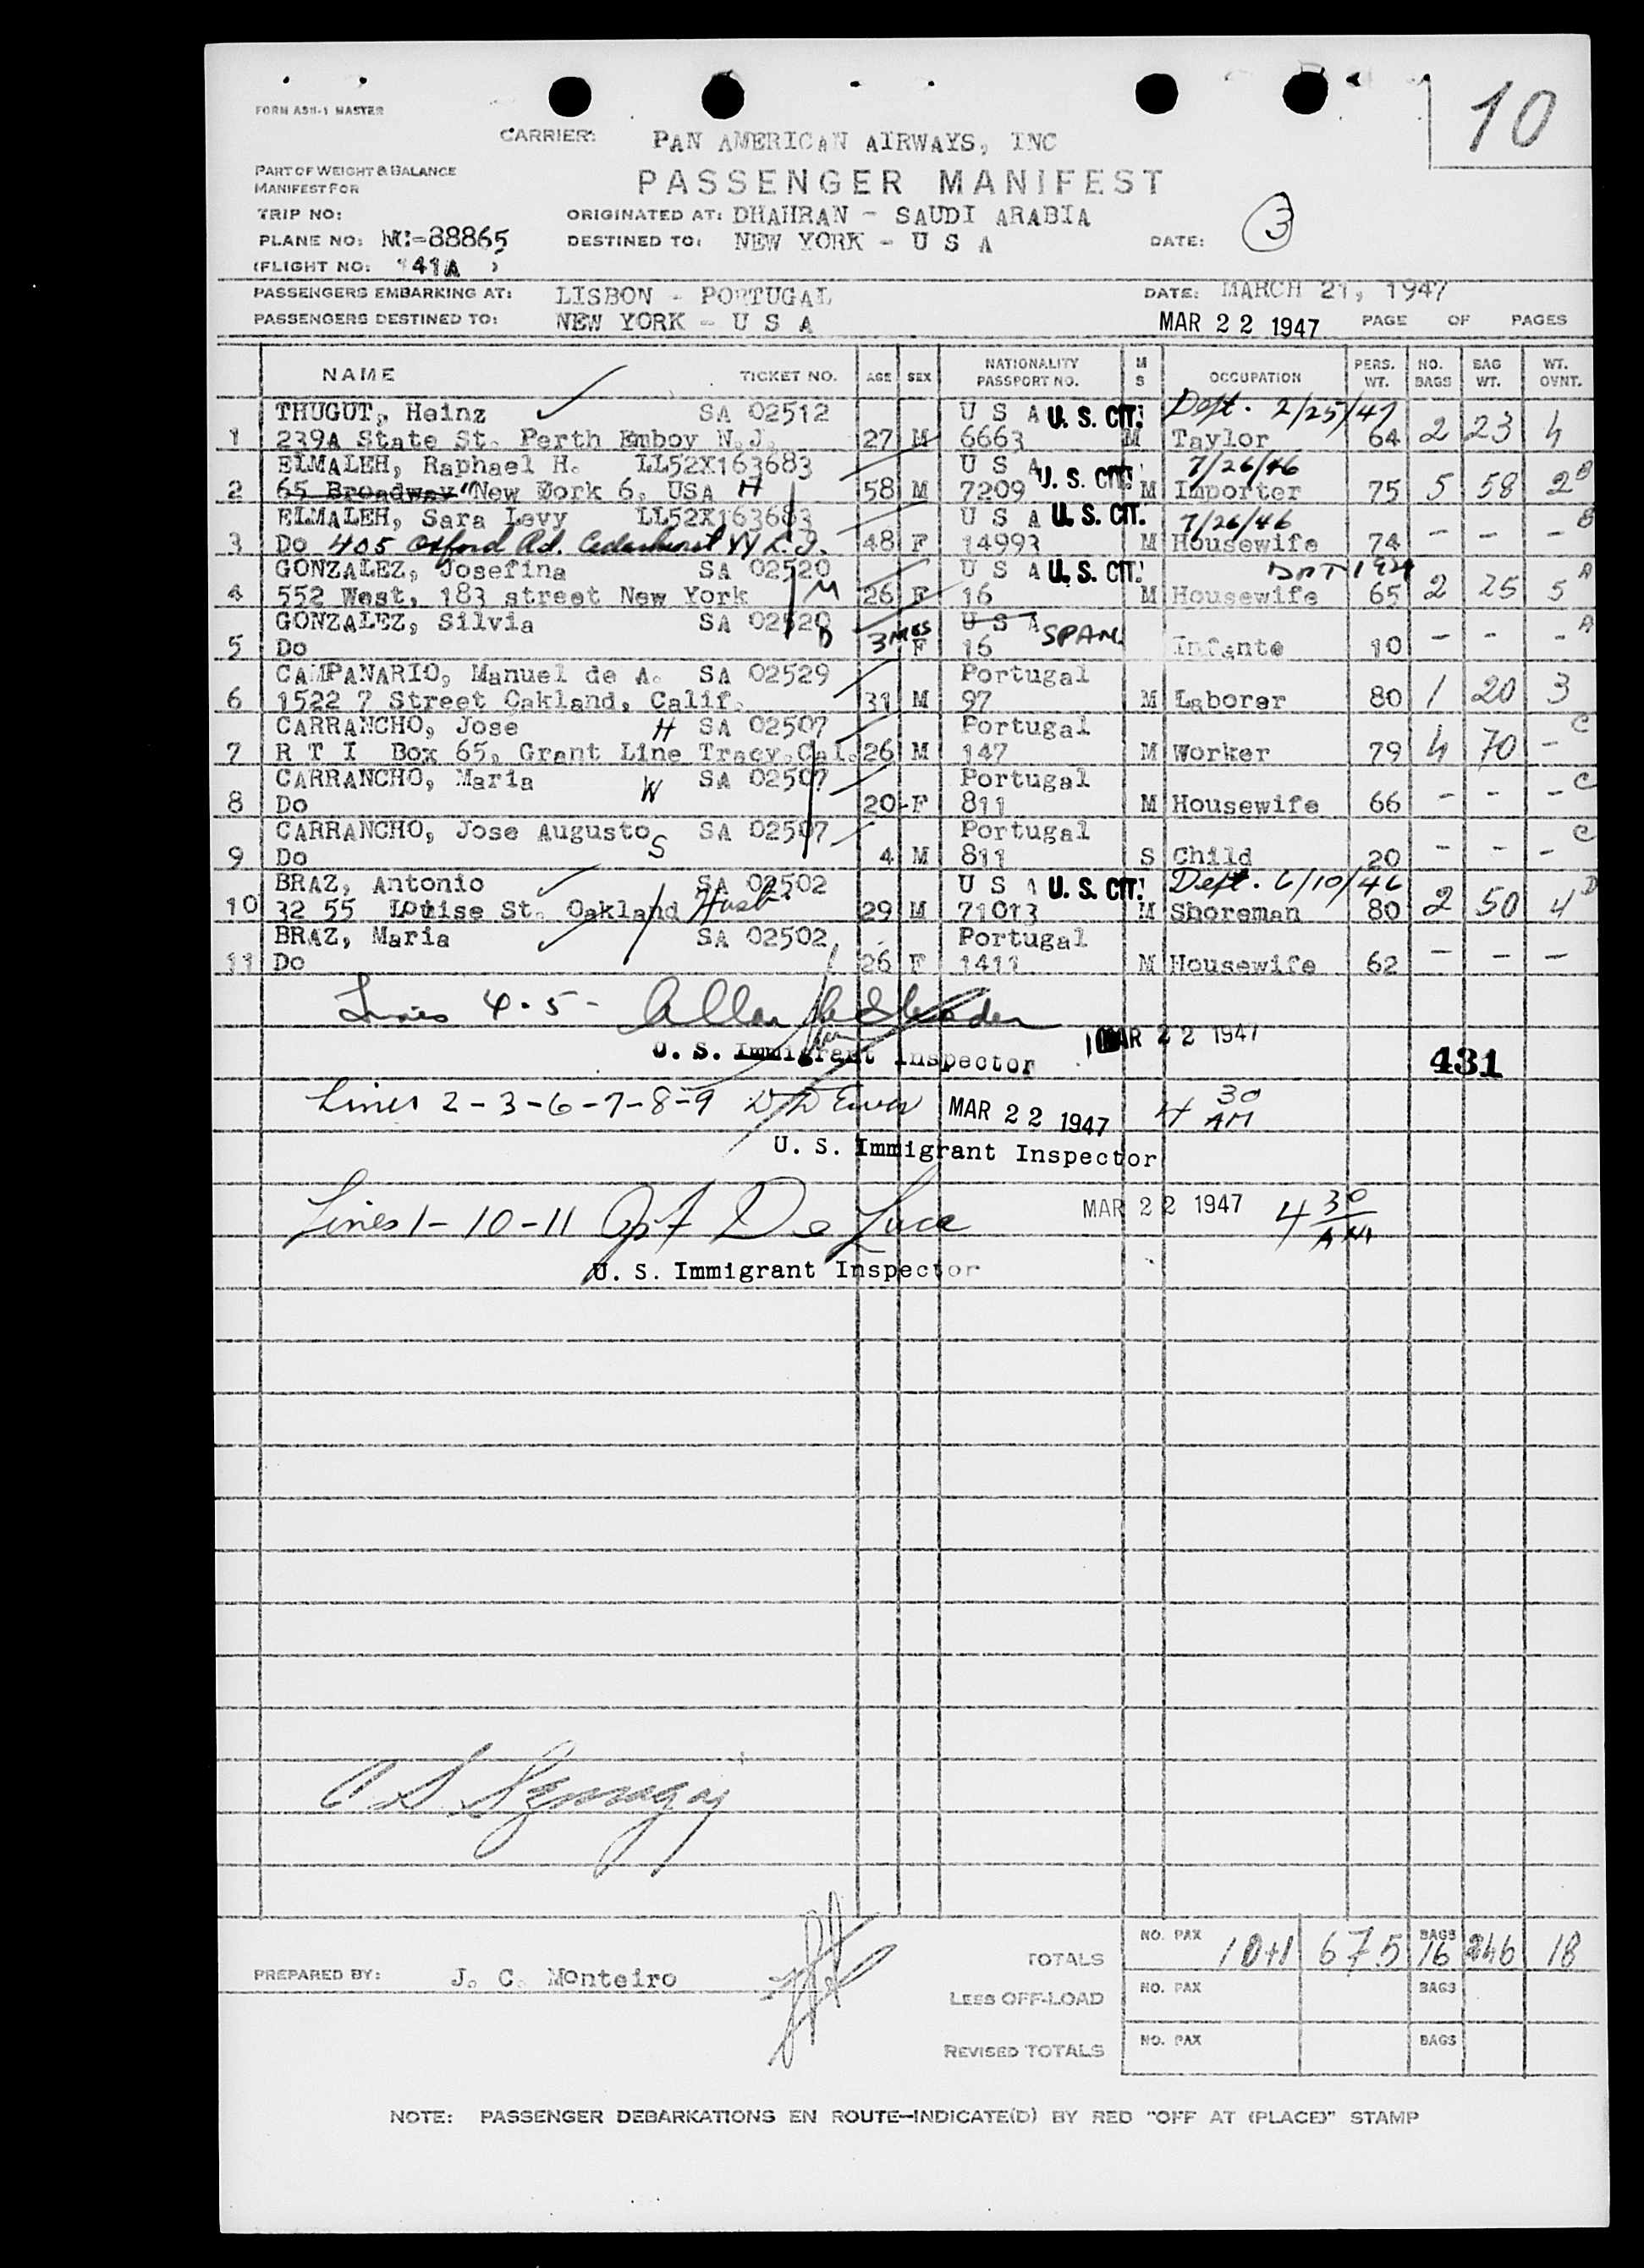 10
FORM ASH-1 MASTER
CARRIER: PAN AMERICAN AIRWAYS, INC
PART OF WEIGHT & BALANCE
MANIFEST FOR
PASSENGER MANIFEST
TRIP NO:
ORIGINATED AT: DHAHRAN - SAUDI ARABIA
3
PLANE NO: NC-88865
DESTINED TO: NEW YORK - U S A
DATE:
(FLIGHT NO: 141A )
PASSENGERS EMBARKING AT: LISBON - PORTUGAL
DATE: MARCH 21, 1947
PASSENGERS DESTINED TO: NEW YORK - U S A
MAR 22 1947 PAGE OF PAGES
NAME TICKET NO. AGE SEX NATIONALITY PASSPORT NO. M S OCCUPATION PERS. WT. NO. BAGS BAG WT. WT. OVNT.
THUGUT, Heinz SA 02512 U S A U. S. CIT. Dept. 2/25/47
1 239A State St. Perth Emboy N.J. 27 M 6663 M Taylor 64 2 23 4
ELMALEH, Raphael H. LL52X163683 U S A U. S. CIT. 7/26/46
2 65 Broadway New York 6, USA H 58 M 7209 M Importer 75 5 58 2 B
ELMALEH, Sara Levy LL52X163683 U S A U. S. CIT. 7/26/46 B
3 Do 405 Oxford Rd. Cedarhurst W L.I. 48 F 14993 M Housewife 74 - - -
GONZALEZ, Josefina SA 02520 U S A U. S. CIT.
4 552 West, 183 street New York M 26 F 16 M Housewife 65 2 25 5 A
GONZALEZ, Silvia SA 02520 U S A SPAN A
5 Do D 3 MES F 16 Infante 10 - - -
CAMPANARIO, Manuel de A. SA 02529 Portugal
6 1522 7 Street Oakland, Calif. 31 M 97 M Laborer 80 1 20 3
CARRANCHO, Jose H SA 02507 Portugal C
7 R T I Box 65, Grant Line Tracy.Cal. 26 M 147 M Worker 79 4 70 -
CARRANCHO, Maria W SA 02507 Portugal C
8 Do 20 F 811 M Housewife 66 - - -
CARRANCHO, Jose Augusto S SA 02507 Portugal C
9 Do 4 M 811 S Child 20 - - -
BRAZ, Antonio SA 02502 U S A U. S. CIT. Dept. 6/10/46 D
10 32 55 Louise St. Oakland Husb. 29 M 71013 M Shoreman 80 2 50 4
BRAZ, Maria SA 02502 Portugal
11 Do 26 F 1411 M Housewife 62 - - -
Lines 4-5-
U. S. Immigrant Inspector MAR 22 1947
431
Lines 2-3-6-7-8-9 MAR 22 1947 4 30 AM
U. S. Immigrant Inspector
Lines 1-10-11 De Luca MAR 22 1947 4 30 AM
U. S. Immigrant Inspector
TOTALS NO. PAX 10+1 675 BAGS 16 246 18
PREPARED BY: J. C. Monteiro
LESS OFF-LOAD NO. PAX BAGS
REVISED TOTALS NO. PAX BAGS
NOTE: PASSENGER DEBARKATIONS EN ROUTE—INDICATE(D) BY RED "OFF AT (PLACE)" STAMP